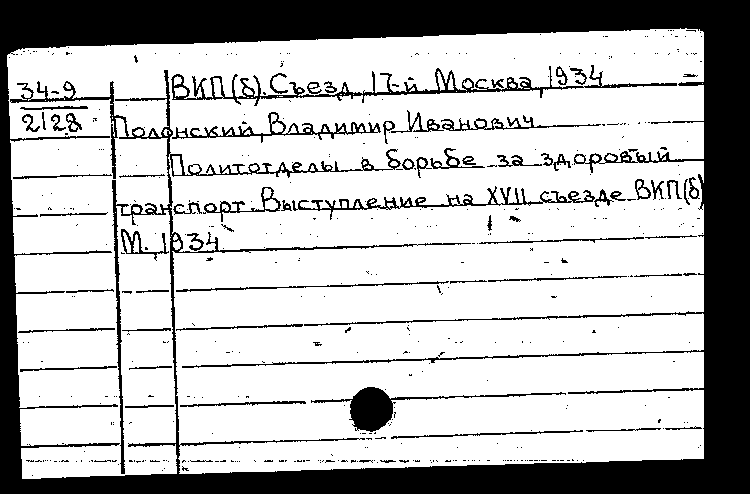 34-9
2128
ВКП(б). Съезд, 17-й. Москва, 1934
Полонский, Владимир Иванович
Политотделы в борьбе за здоровый
транспорт. Выступление на XVII съезде ВКП(б)
М., 1934